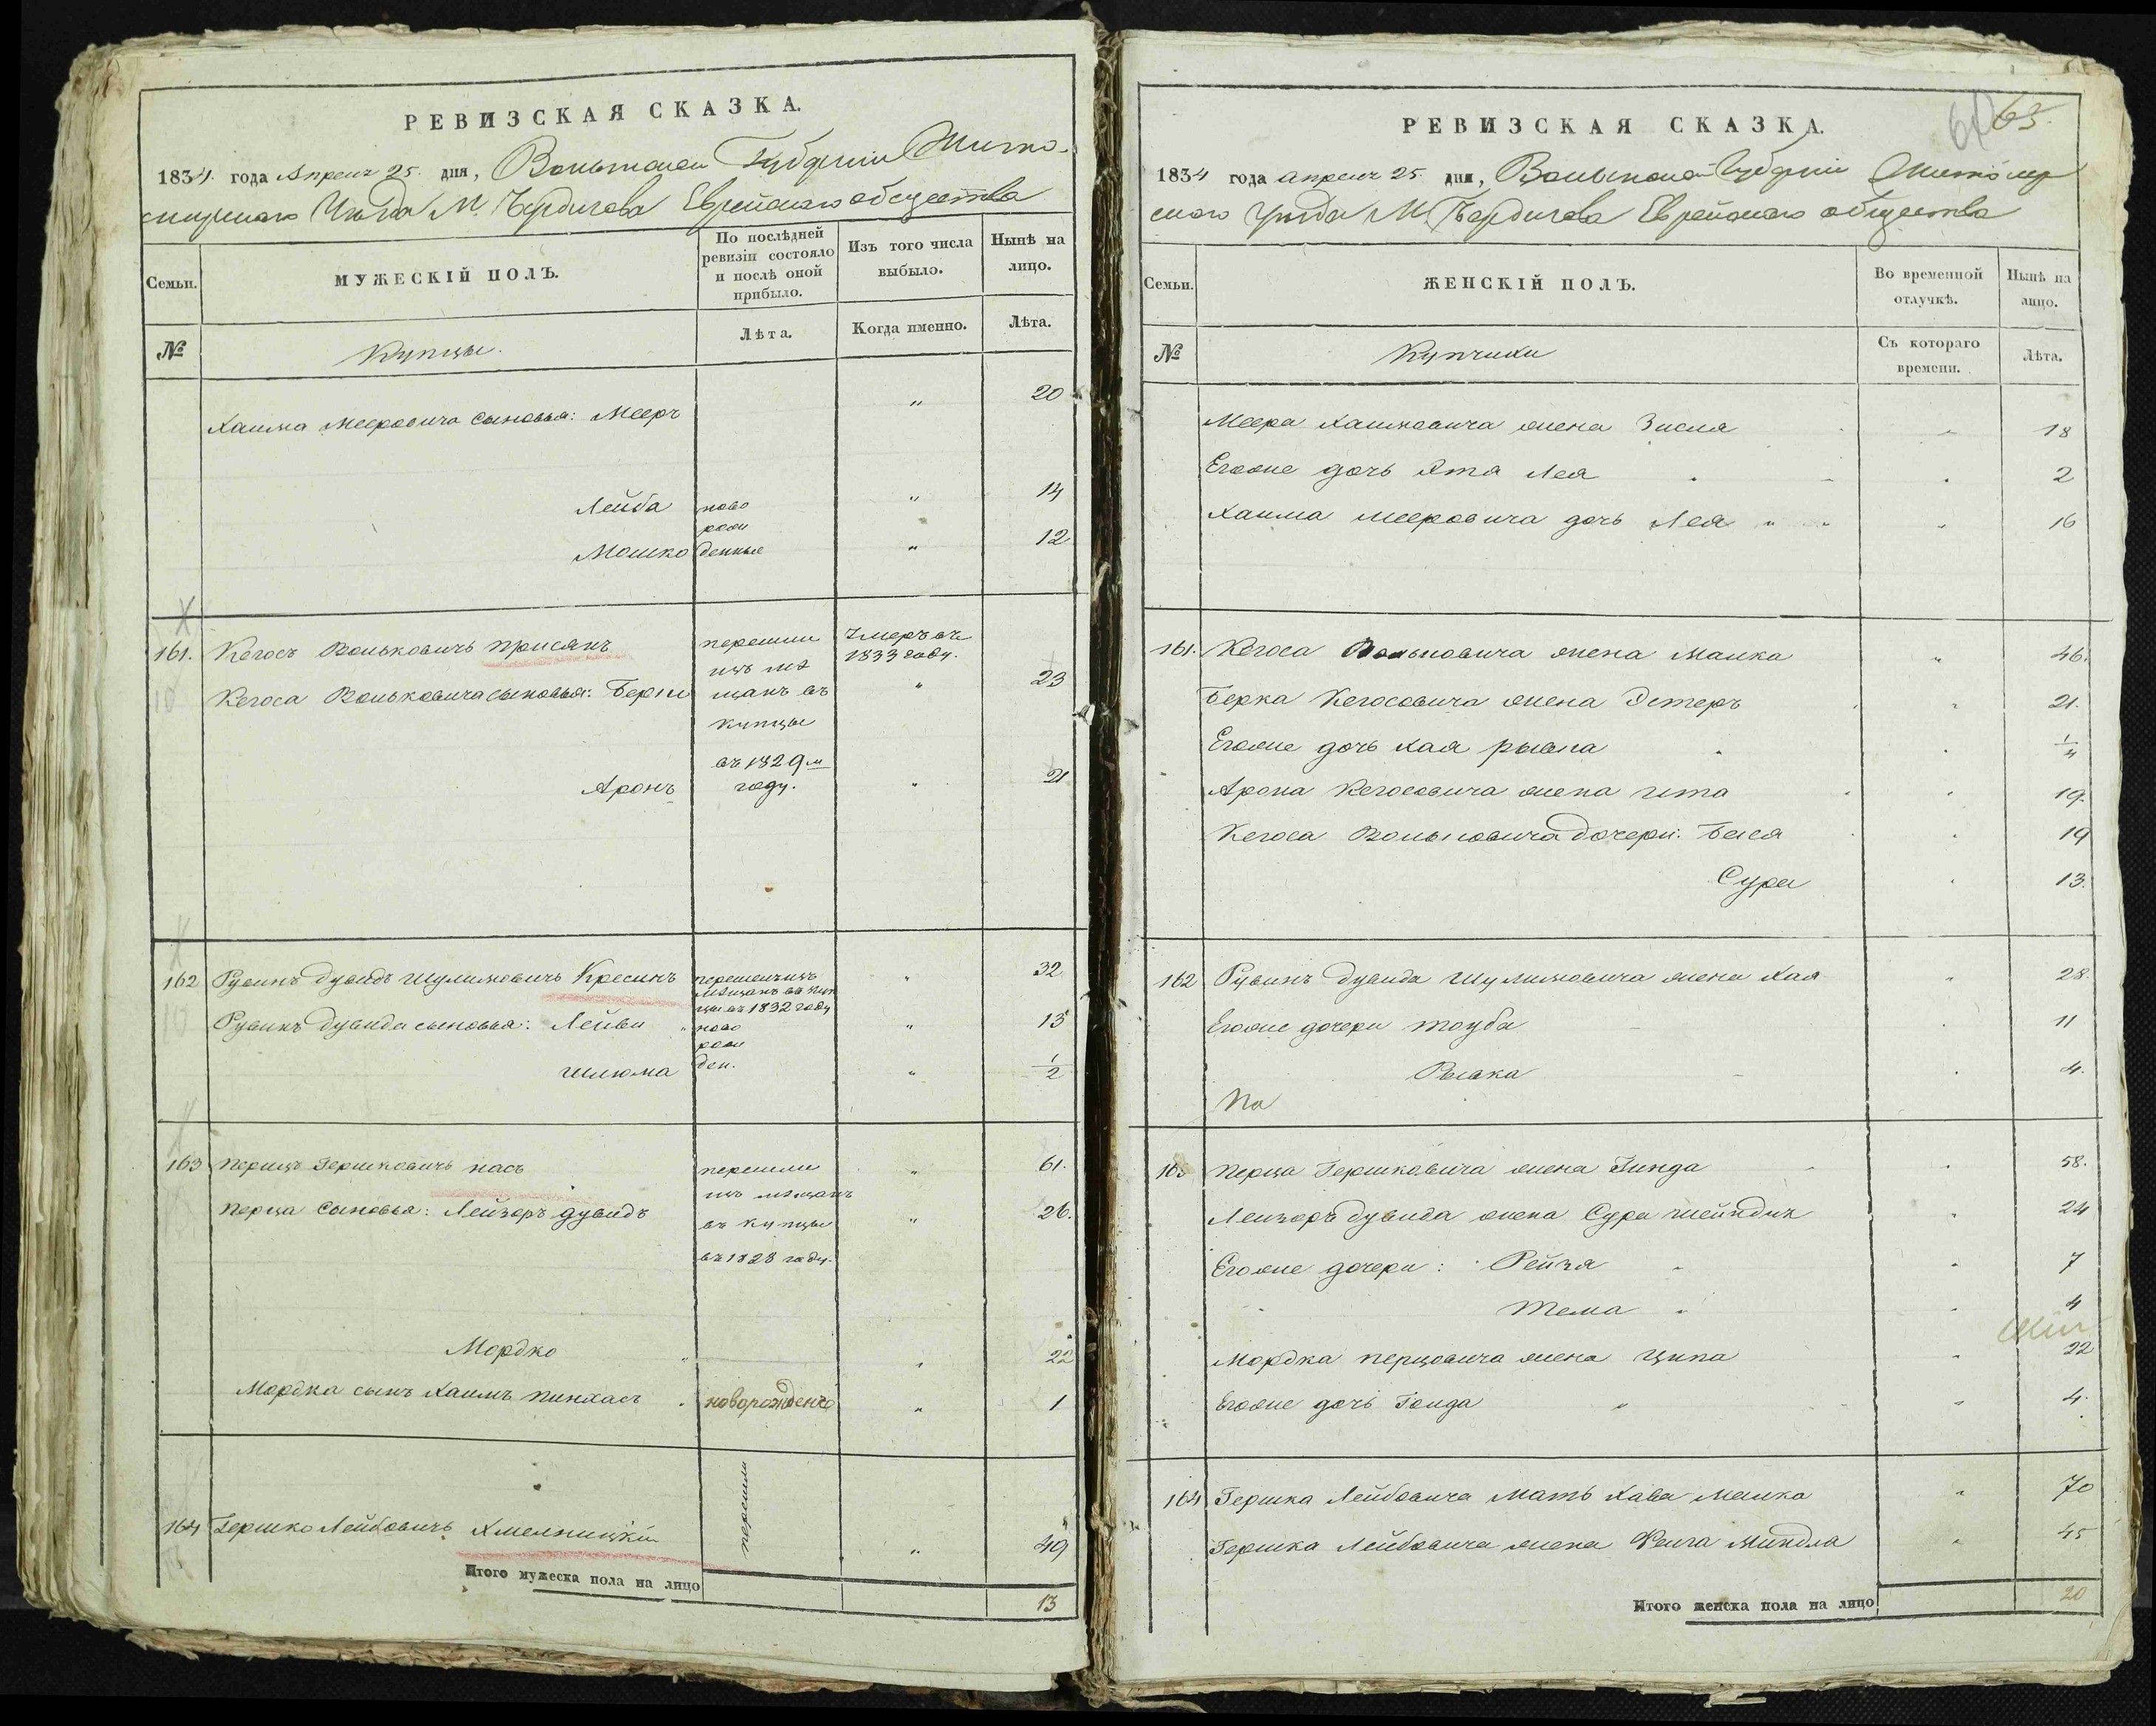 РЕВИЗСКАЯ СКАЗКА.
1834. года Апреля 25. дня, Волынской Губернии Жито-
мирскаго Уезда М. Бердичева Еврейскаго общества
Семьи.
МУЖЕСКІЙ ПОЛЪ.
По послѣдней ревизіи состояло и послѣ оной прибыло.
Изъ того числа выбыло.
Нынѣ на лицо.
№
Купцы.
Лѣта.
Когда именно.
Лѣта.
Хаима Мееровича сыновья: Мееръ " 20
Лейба ново " 14
рож
Мошко денные " 12
161. Кегосъ Вольковичъ Присянъ перешли Умеръ въ
изъ мѣ 1833 году.
Кегоса Вольковича сыновья: Берко щанъ въ " 23
купцы
въ 1829м
Аронъ году. " 21
162 Рувинъ Дувидъ Шулимовичъ Кресинъ перешелъ изъ " 32
мѣщанъ въ куп
цы въ 1832 году
Рувинъ Дувида сыновья: Лейви " ново " 13
рож
Шлюма ден. " 1/2
163 Перецъ Гершковичъ пасъ перешли " 61.
изъ мѣщанъ
Перца сыновья: Лейзоръ Дувидъ въ купцы " 26.
въ 1828 году.
Мордко " " 22
Мордка сынъ Хаимъ Пинхасъ новорожденъ " 1
164 Гершко Лейбовичъ Хмельницкій перешли " 49
Итого мужеска пола на лицо 13
РЕВИЗСКАЯ СКАЗКА. 63.
1834 года апреля 25. дня, Волынской Губерніи Житомир
скаго Уезда М Бердичева Еврейскаго общества
Семьи.
ЖЕНСКІЙ ПОЛЪ.
Во временной отлучкѣ.
Нынѣ на лицо.
№
Купчихи
Съ котораго времени.
Лѣта.
Меера Хаимовича жена Зисля " 18
Егоже дочь Ята Лея " 2
Хаима Мееровича дочь Лея " " " 16
161. Кегоса Вольковича жена Малка " 46.
Берка Кегосовича жена Эстеръ " 21.
Егоже дочь Хая рывка " 1/4
Арона Кегосовича жена Ита " 19.
Кегоса Вольковича дочери: Бася " 19
Сура " 13.
162 Рувинъ Дувида Шулимовича жена Хая " 28.
Егоже дочери тоуба " 11
Рывка " 4.
По
163 Перца Гершковича жена Гинда " 58.
Лейзоръ Дувида жена Сура шейндля " 24
Егоже дочери: Рейзя " 7
Тема " 4
Мордка перцовича жена Ципа " 22
Егоже дочь Голда " 4.
164 Гершка Лейбовича мать Хава Малка " 70
Гершка Лейбовича жена Фейга Миндля " 45
Итого женска пола на лицо 20